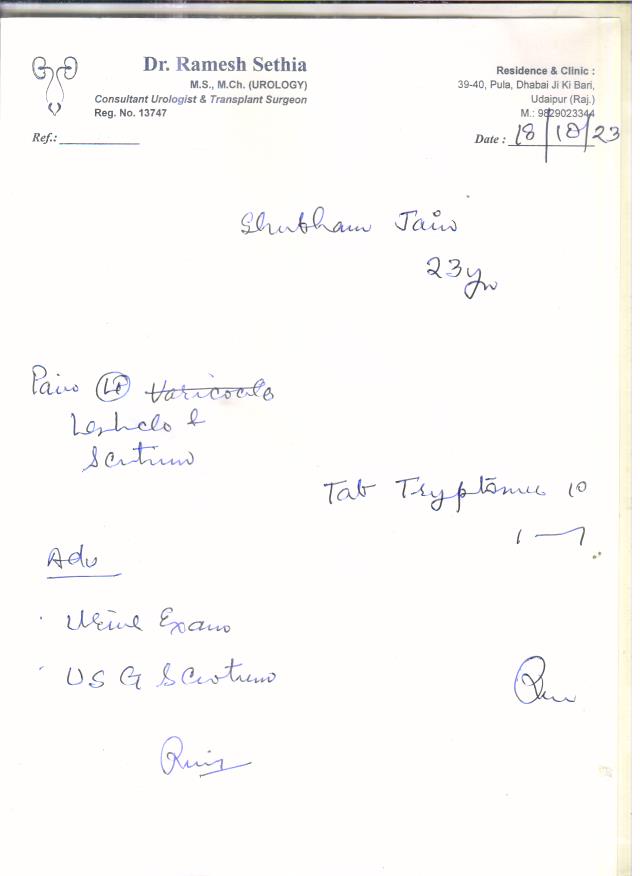 Dr. Ramesh Sethia
M.S., M.Ch. (UROLOGY)
Consultant Urologist & Transplant Surgeon
Reg. No. 13747
Ref.:
Residence & Clinic :
39-40, Pula, Dhabai Ji Ki Bari,
Udaipur (Raj.)
M.: 9829023344
Date : 18/10/23
Shubham Jain
23 yr
Pain Varicocele
&
Scrotum
Tab Tryptomer 10
1
Adv
Urine Exam
USG Scrotum